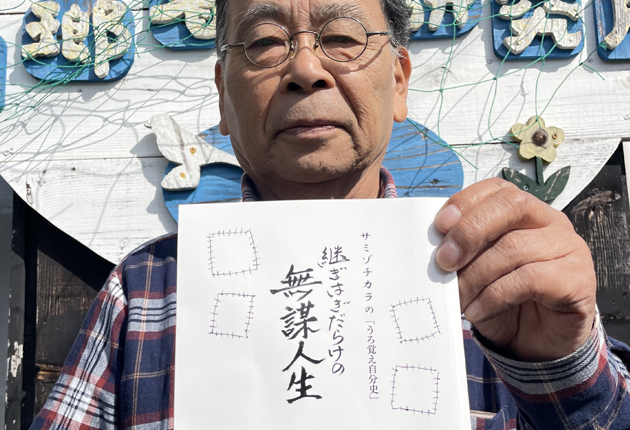 郷 究
サミゾチカラの「うろ覚え自分史」
継ぎはぎだらけの
無謀人生